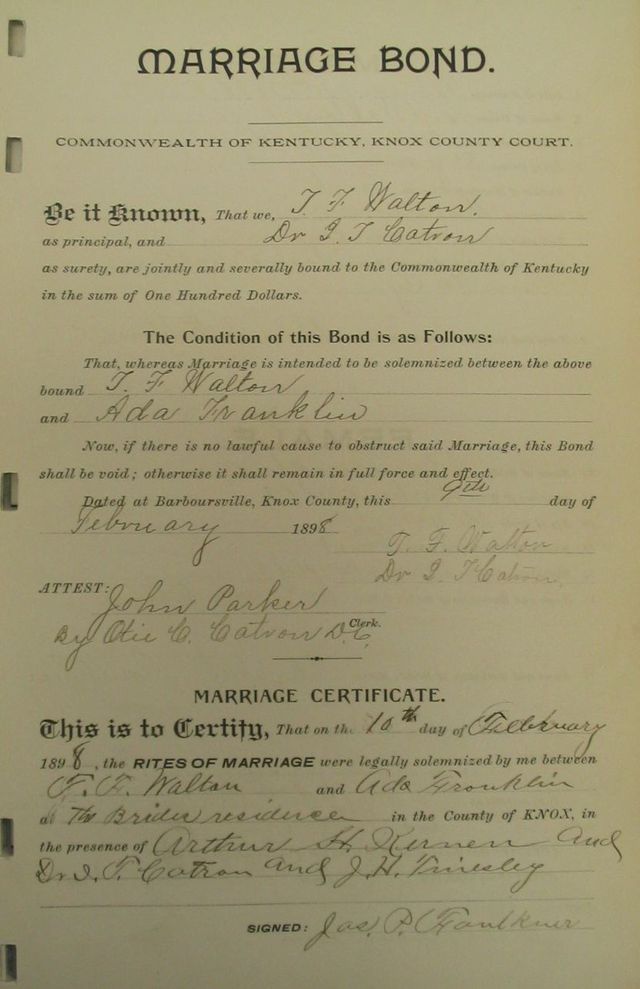 MARRIAGE BOND.
COMMONWEALTH OF KENTUCKY, KNOX COUNTY COURT.
Be it Known, That we, T. F. Walton.
as principal, and Dr I. T Catron
as surety, are jointly and severally bound to the Commonwealth of Kentucky
in the sum of One Hundred Dollars.
The Condition of this Bond is as Follows:
That, whereas Marriage is intended to be solemnized between the above
bound T. F. Walton
and Ada Franklin
Now, if there is no lawful cause to obstruct said Marriage, this Bond
shall be void; otherwise it shall remain in full force and effect.
Dated at Barboursville, Knox County, this 9th day of
February 1898
T. F. Walton
Dr I. T Catron,
ATTEST: John Parker
Clerk.
By Otie C. Catron D.C.
MARRIAGE CERTIFICATE.
This is to Certify, That on the 10th day of February
1898, the RITES OF MARRIAGE were legally solemnized by me between
F. F. Walton and Ada Franklin
at The Brides residence in the County of KNOX, in
the presence of Arthur H. and
Dr I. T. Catron and J. H. Tinsley
SIGNED: Jas. P. Faulkner